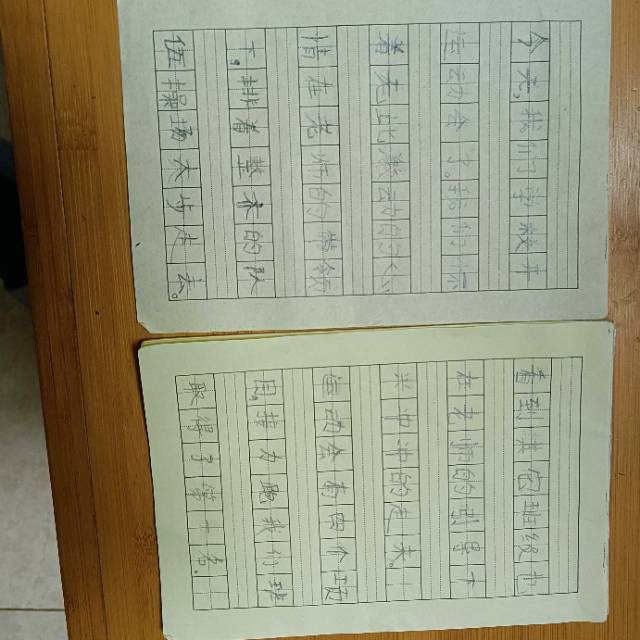 今天,我们学校举
运动会了。我们怀
着无比激动的心
情在老师的带领
下,排着整齐的队
伍操场大步走去。
看到其它班级也
在老师的引导下
兴冲冲的走来。
运动会有四个题
目,接力跑我们班
取得了第十名。